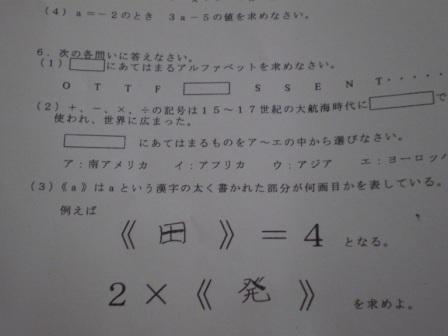 (4) a=-2のとき 3a-5の値を求めなさい。
6. 次の各問いに答えなさい。
(1) にあてはまるアルファベットを求めなさい。
O T T F S S E N T・・・・・
(2) +、-、×、÷の記号は15~17世紀の大航海時代に で
使われ、世界に広まった。
にあてはまるものをア~エの中から選びなさい。
ア:南アメリカ イ:アフリカ ウ:アジア エ:ヨーロッ
(3)《a》はaという漢字の太く書かれた部分が何画目かを表している。
例えば
《 田 》=4 となる。
2×《 発 》 を求めよ。